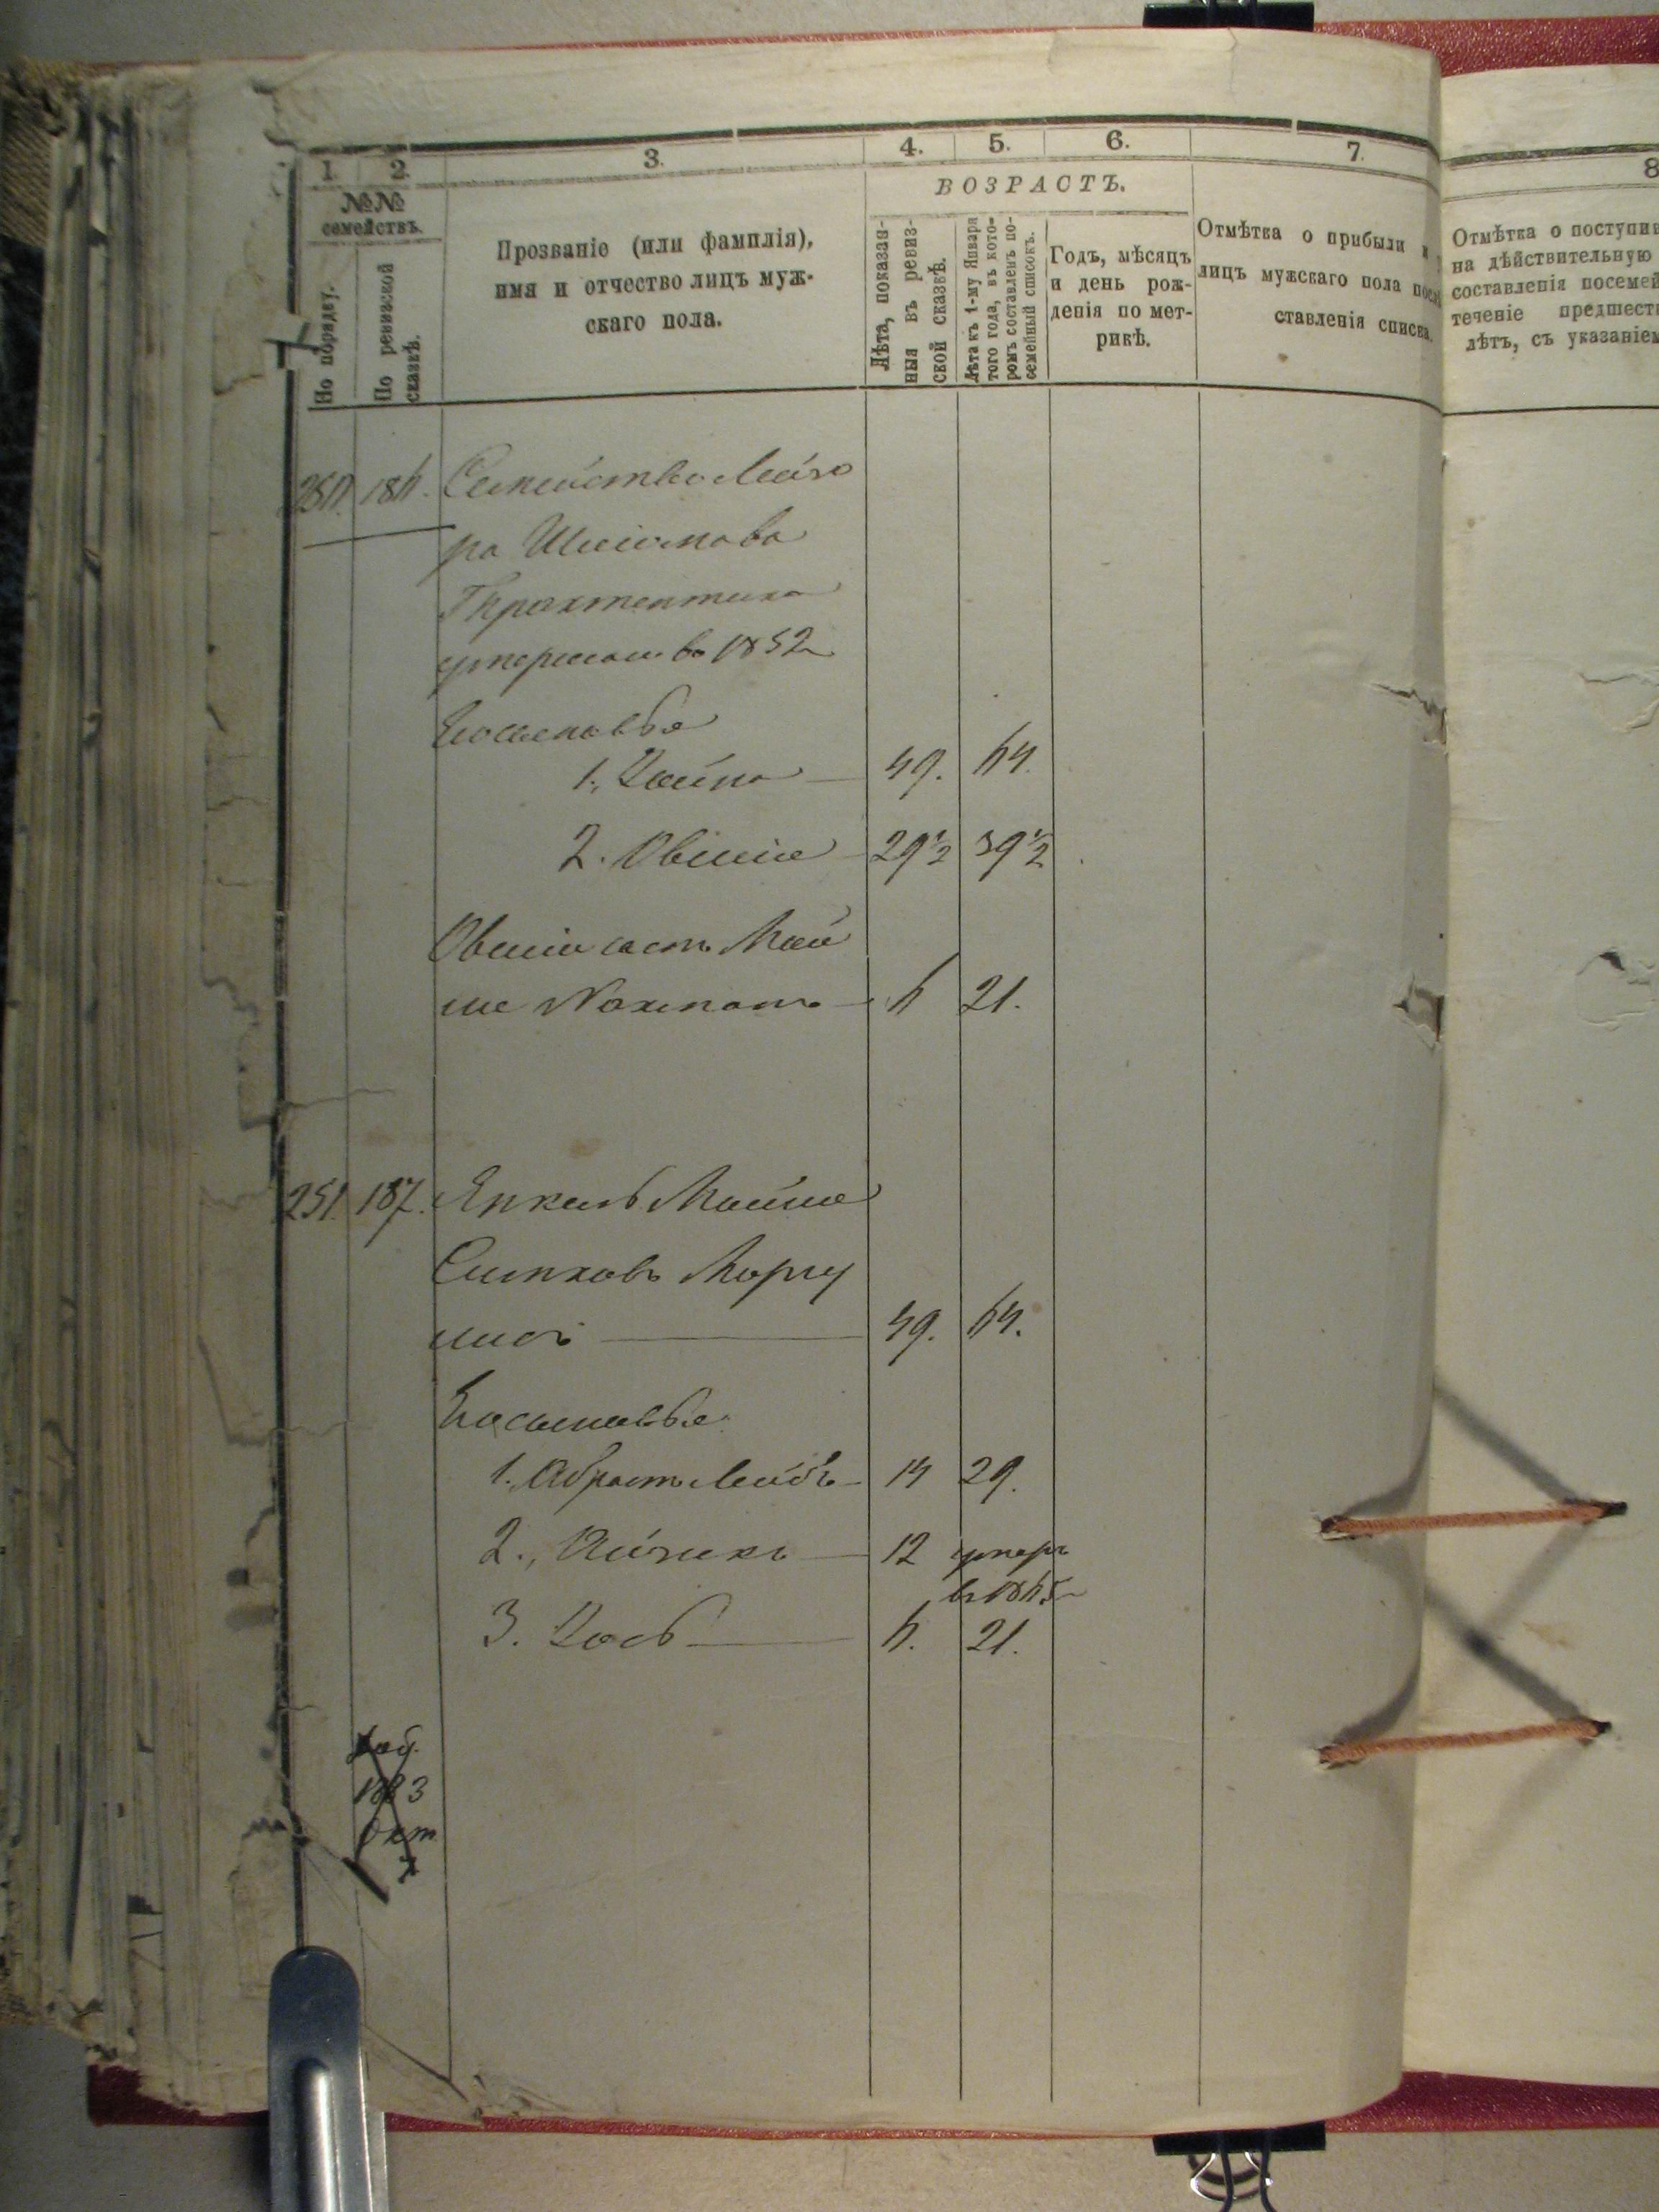 1. 2. 3. 4. 5. 6. 7. 8
№№ семействъ.
По порядку.
По ревизской сказкѣ.
Прозваніе (или фамилія),
имя и отчество лицъ муж-
скаго пола.
ВОЗРАСТЪ.
Лѣта, показан-
ныя въ ревиз-
ской сказкѣ.
Лѣта къ 1-му Января
того года, въ кото-
ромъ составленъ по-
семейный списокъ.
Годъ, мѣсяцъ
и день рож-
денія по мет-
рикѣ.
Отмѣтка о прибыли и
лицъ мужскаго пола посл
ставленія списка.
Отмѣтка о поступив
на дѣйствительную
составленія посемей
теченіе предшест
лѣтъ, съ указаніем
186. Семейство Лейзо
ра Шліомова
умершаго въ 1852
Его сыновья
1. Хаимъ 49. 64.
2. Овшіе 29½ 39½
Овшія сынъ Мои
ше Нахманъ 6 21.
251. 187. Янкель Моише
Симховъ Маргу
лисъ 49. 64.
Его сыновья
1. Абрамъ Лейбъ 14 29.
2., Айзикъ 12 умеръ
въ 1865
3. 6. 21.
1883
Окт